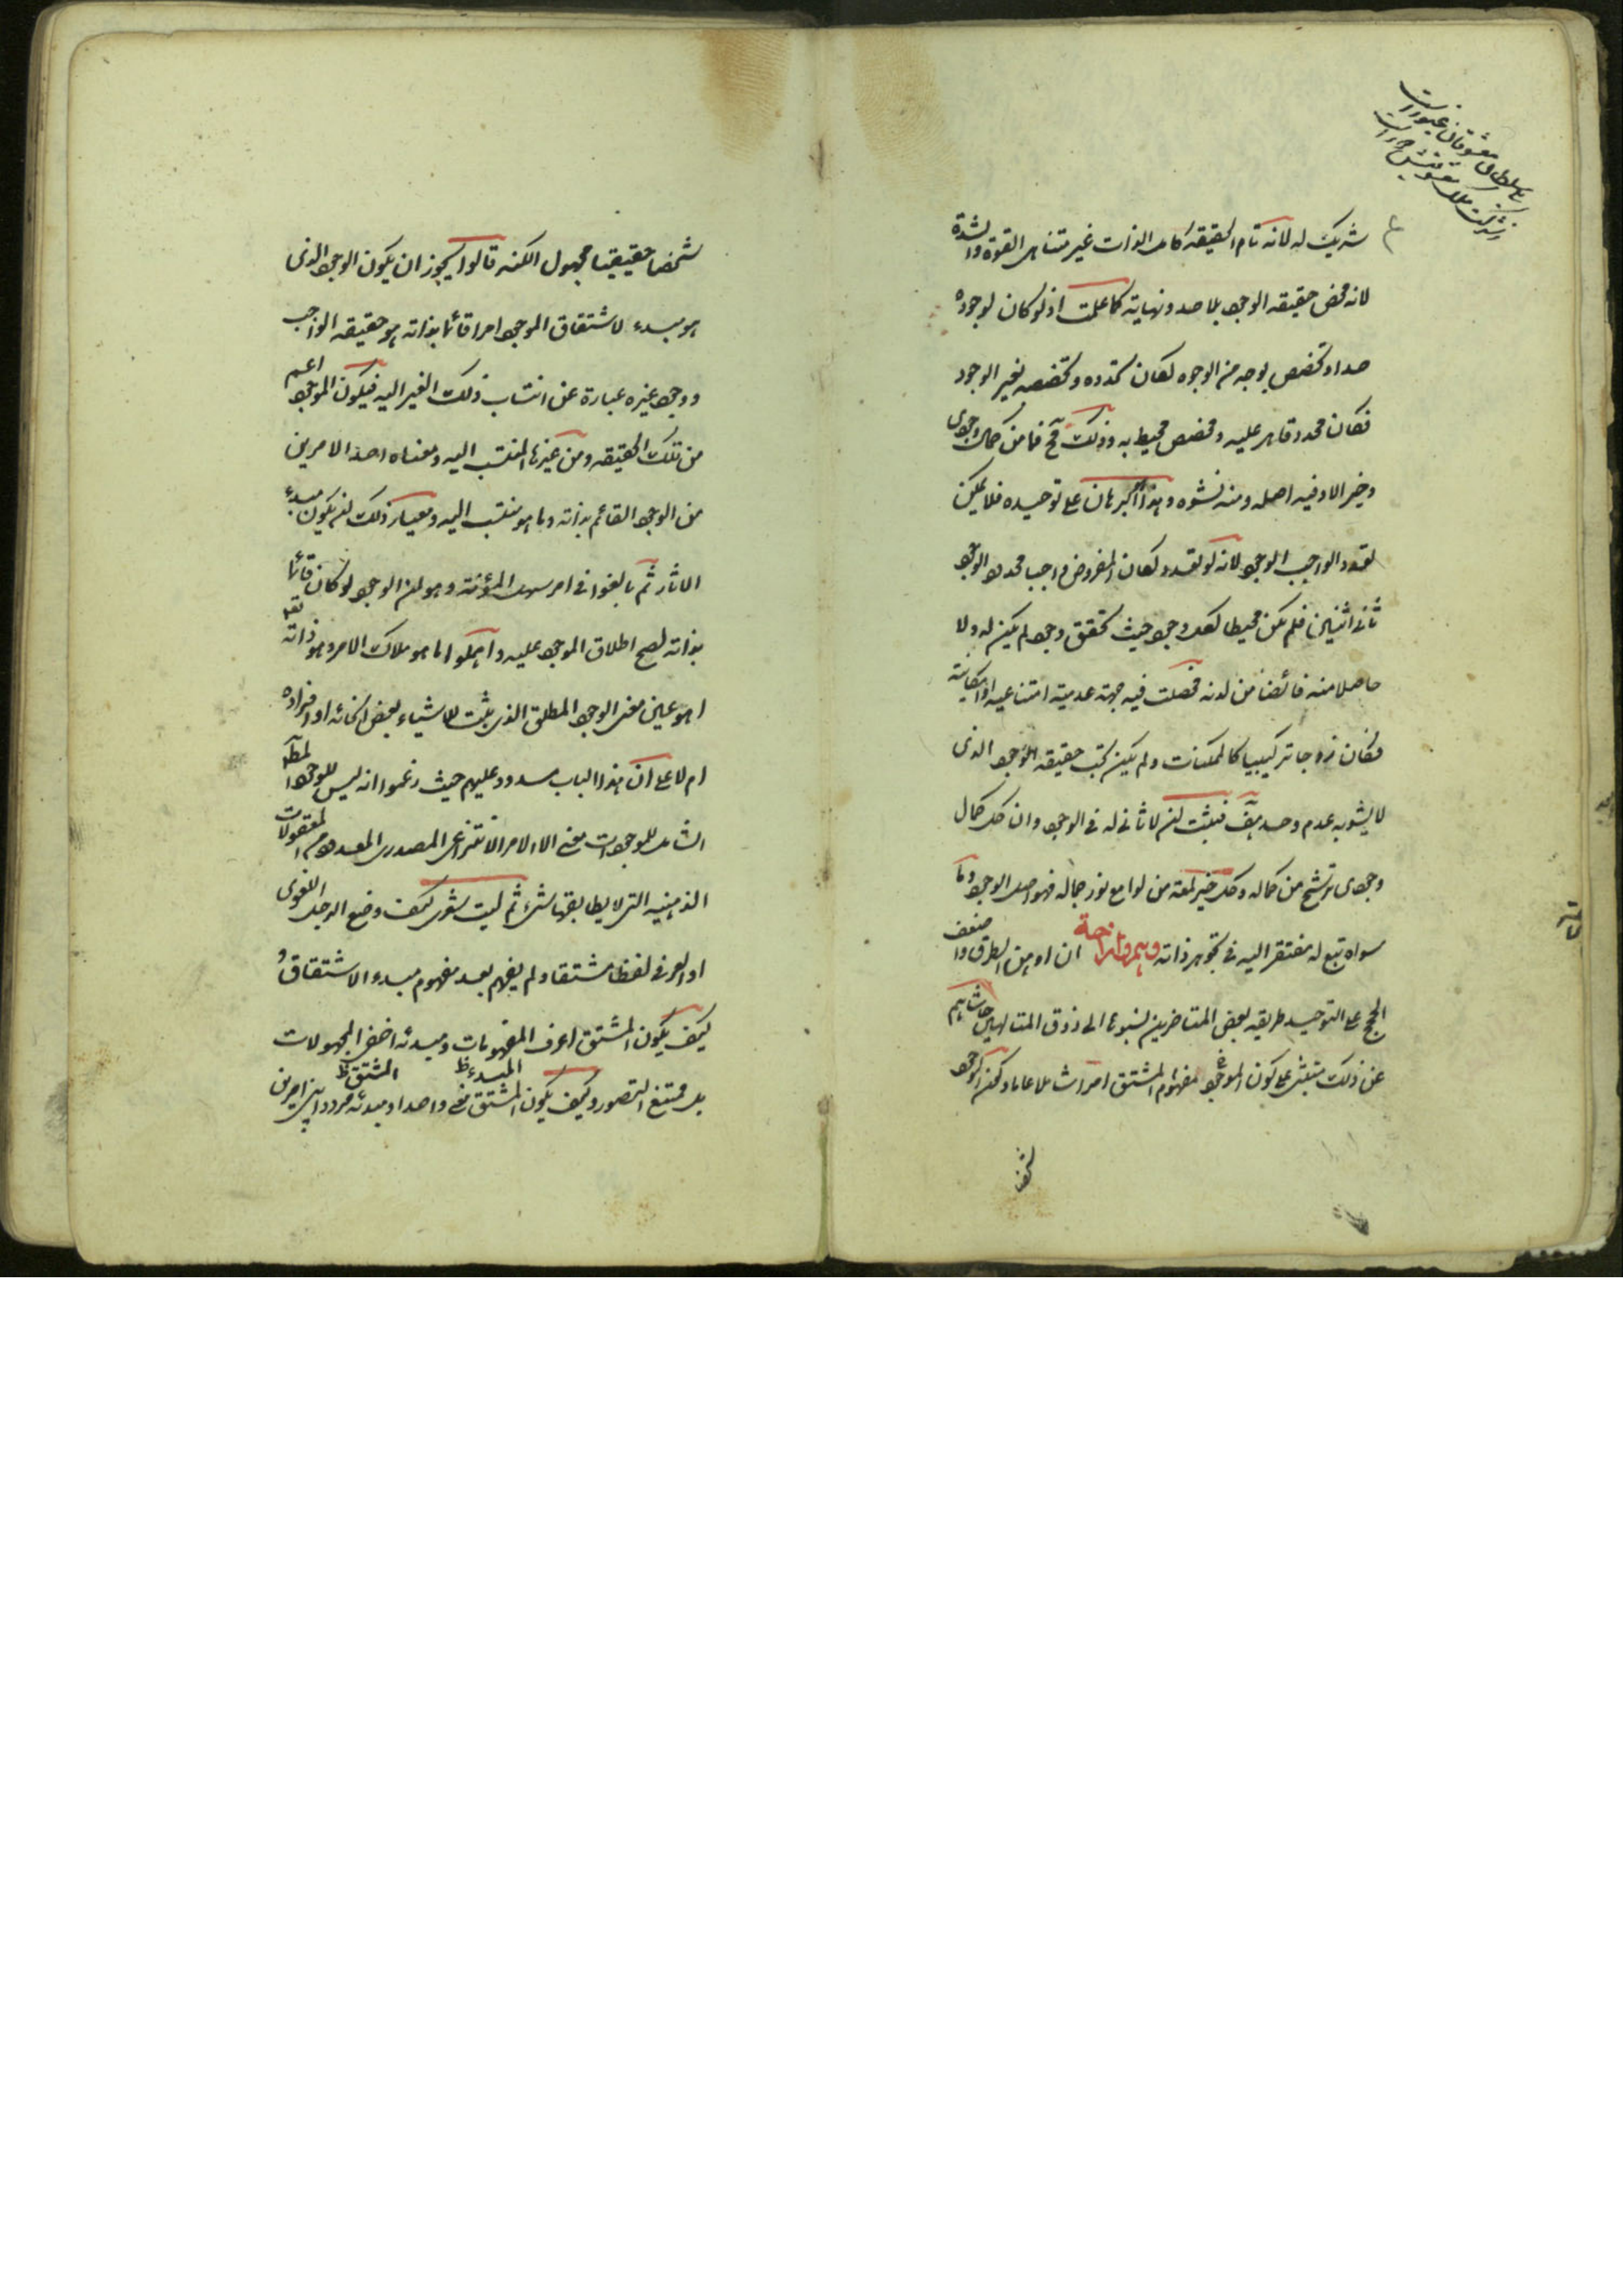 شريك له لانه تام الحقيقه كامل الذات غير متناهى القوة والشدة
لانه محض حقيقه الوجود بلا حد ونهاية كما علمت اذ لو كان لوجوده
حد او تخصص بوجه من الوجوه لكان تحدده وتخصصه بغير الوجود
فكان محدد قاهر عليه ومخصص محيط به وذلك مح فما من كمال وجودى
وخير الا وفيه اصله ومنه نشوه وهذا البرهان على توحيده فلا يمكن
تعدد الواجب الوجود لانه لو تعدد لكان المفروض واجبا محدود الوجود
ثانى اثنين فلم يكن محيطا بكل وجود حيث تحقق وجود لم يكن له ولا
حاصلا منه فائضا من لدنه فحصلت فيه جهة عدمية امتناعيه او امكانية
فكان زوجا تركيبيا كالممكنات ولم يكن بحت حقيقه الوجود الذى
لا يشوبه عدم وحد هف فثبت ان لا ثانى له فى الوجود وان كل كمال
وجودى ترشح من كماله وكل خير لمعة من لوامع نور جماله فهو اصل الوجود وما
سواه تبع له مفتقر اليه فى تجوهر ذاته وهم وازاحة ان اوهن الطرق واضعف
الحجج على التوحيد طريقه بعض المتاخرين نسبوها الى ذوق المتالهين حاشاهم
عن ذلك مبتنى على كون الموجود مفهوم المشتق امرا شاملا عاما وكون الوجود
شخصا
شخصا حقيقيا مجهول الكنه قالوا يجوز ان يكون الوجود الذى
هو مبدء لاشتقاق الموجود امرا قائما بذاته هو حقيقه الواجب
ووجود غيره عبارة عن انتساب ذلك الغير اليه فيكون الموجود اعم
من تلك الحقيقه ومن غيرها المنتسب اليه ومعناه احد الامرين
من الوجود القائم بذاته وما هو منتسب اليه ومعيار ذلك ان يكون مبدء
الاثار ثم بالغوا فى امر سهل المؤنة وهو ان الوجود لو كان قائما
بذاته لصح اطلاق الموجود عليه واهملوا ما هو ملاك الامر وهو ذاته تعه
اهو عين معنى الوجود المطلق الذى يثبت للاشياء بعض انحائه او افراده
ام لا على ان هذا الباب مسدود عليهم حيث زعموا انه ليس للوجود المطلق
الشامل للوجودات معنى الا الامر الانتزاعى المصدرى المعدود من المعقولات
الذهنيه التى لا يطابقها شئ ثم ليت شعرى كيف وضع الرجل اللغوى
او العرفى لفظا مشتقا ولم يفهم بعد مفهوم مبدء الاشتقاق
كيف يكون المشتق اعرف المفهومات ومبدئه اخفى المجهولات
المبدء ظ المشتق ظ
بل ممتنع التصور وكيف يكون المشتق معنى واحدا ومبدئه مرددا بين امرين